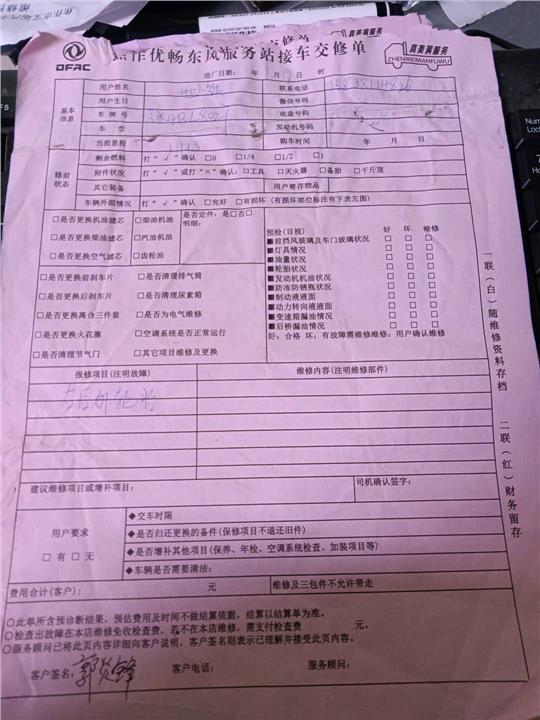 DFAC
焦作优畅东风服务站接车交修单
真美满服务
ZHENMEIMANFUWU
进厂日期: 年 月 17 日 时
基本信息
用户姓名 联系电话
用户生日 微信号码
车牌号 底盘号码
车型 发动机号码
当前里程 购车时间 年 月 日
修前状态
剩余燃料 打“√”确认 □0 □1/4 □1/2 □1
附件状况 打“√”或打“×”确认:□工具 □灭火器 □备胎 □千斤顶
其它装备 用户寄存物品
车辆外部情况 □完好 □有损坏(有损坏部位标注有下表左图)
□是否更换机油滤芯 □柴油机油 是否定件:是□否□
□是否更换柴油滤芯 □汽油机油 明细:
□是否更换空气滤芯 □齿轮油
□是否更换前刹车片 □是否清理排气筒
□是否更换后刹车片 □是否清理尿素箱
□是否更换离合三件套 □是否为电气维修
□是否更换火花塞 □空调系统是否正常运行
□是否清理节气门 □其它项目维修及更换
预检(目视) 好 坏 维修
■前挡风玻璃及车门玻璃状况 □ □ □
■灯具情况 □ □ □
■油量状况 □ □ □
■轮胎状况 □ □ □
■发动机机油状况 □ □ □
■防冻防锈瓶状况 □ □ □
■制动液液面 □ □ □
■动力转向液液面 □ □ □
■变速箱漏油情况 □ □ □
■后桥漏油情况 □ □ □
好:合格 坏:有故障需维修维修:用户确认维修
报修项目(注明故障) 维修内容(注明维修部件)
建议维修项目或增补项目: 司机确认签字:
用户要求
□有 □无
◆交车时限
◆是否归还更换的备件(保修项目不退还旧件)
◆是否增补其他项目(保养、年检、空调系统检查、加装项目等)
◆车辆是否需要清洁:
费用合计(客户): 元 维修及三包件不允许带走
○此单所含预诊断结果,预估费用及时间不做结算依据,结算以结算单为准。
○检查出故障在本店维修免收检查费,若不在本店维修,需支付检查费 元。
○服务顾问已将此页内容详细向客户说明,客户签名则表示已理解并接受此页内容。
客户签名: 郭炎锋 客户电话: 服务顾问:
一联(白)随维修资料存档 二联(红)财务留存